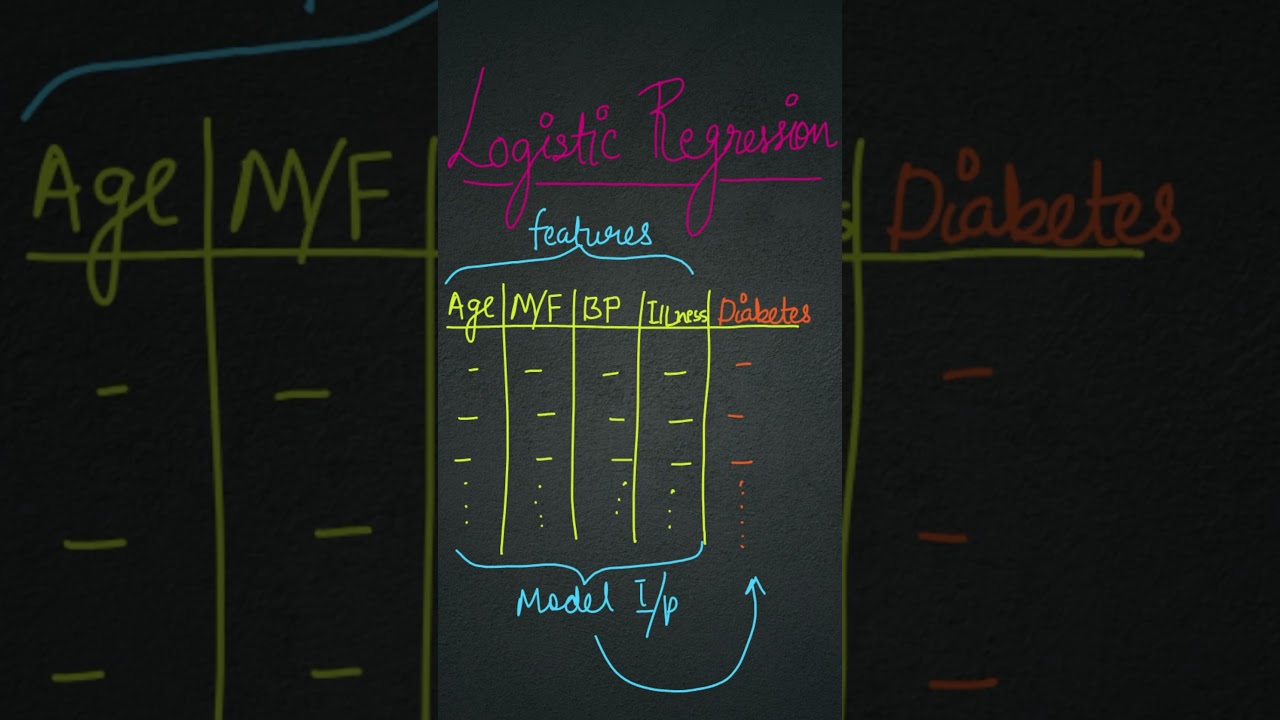 Logistic Regression
features
Age M/F BP Illness Diabetes
Model I/p
Age M/F
Diabetes